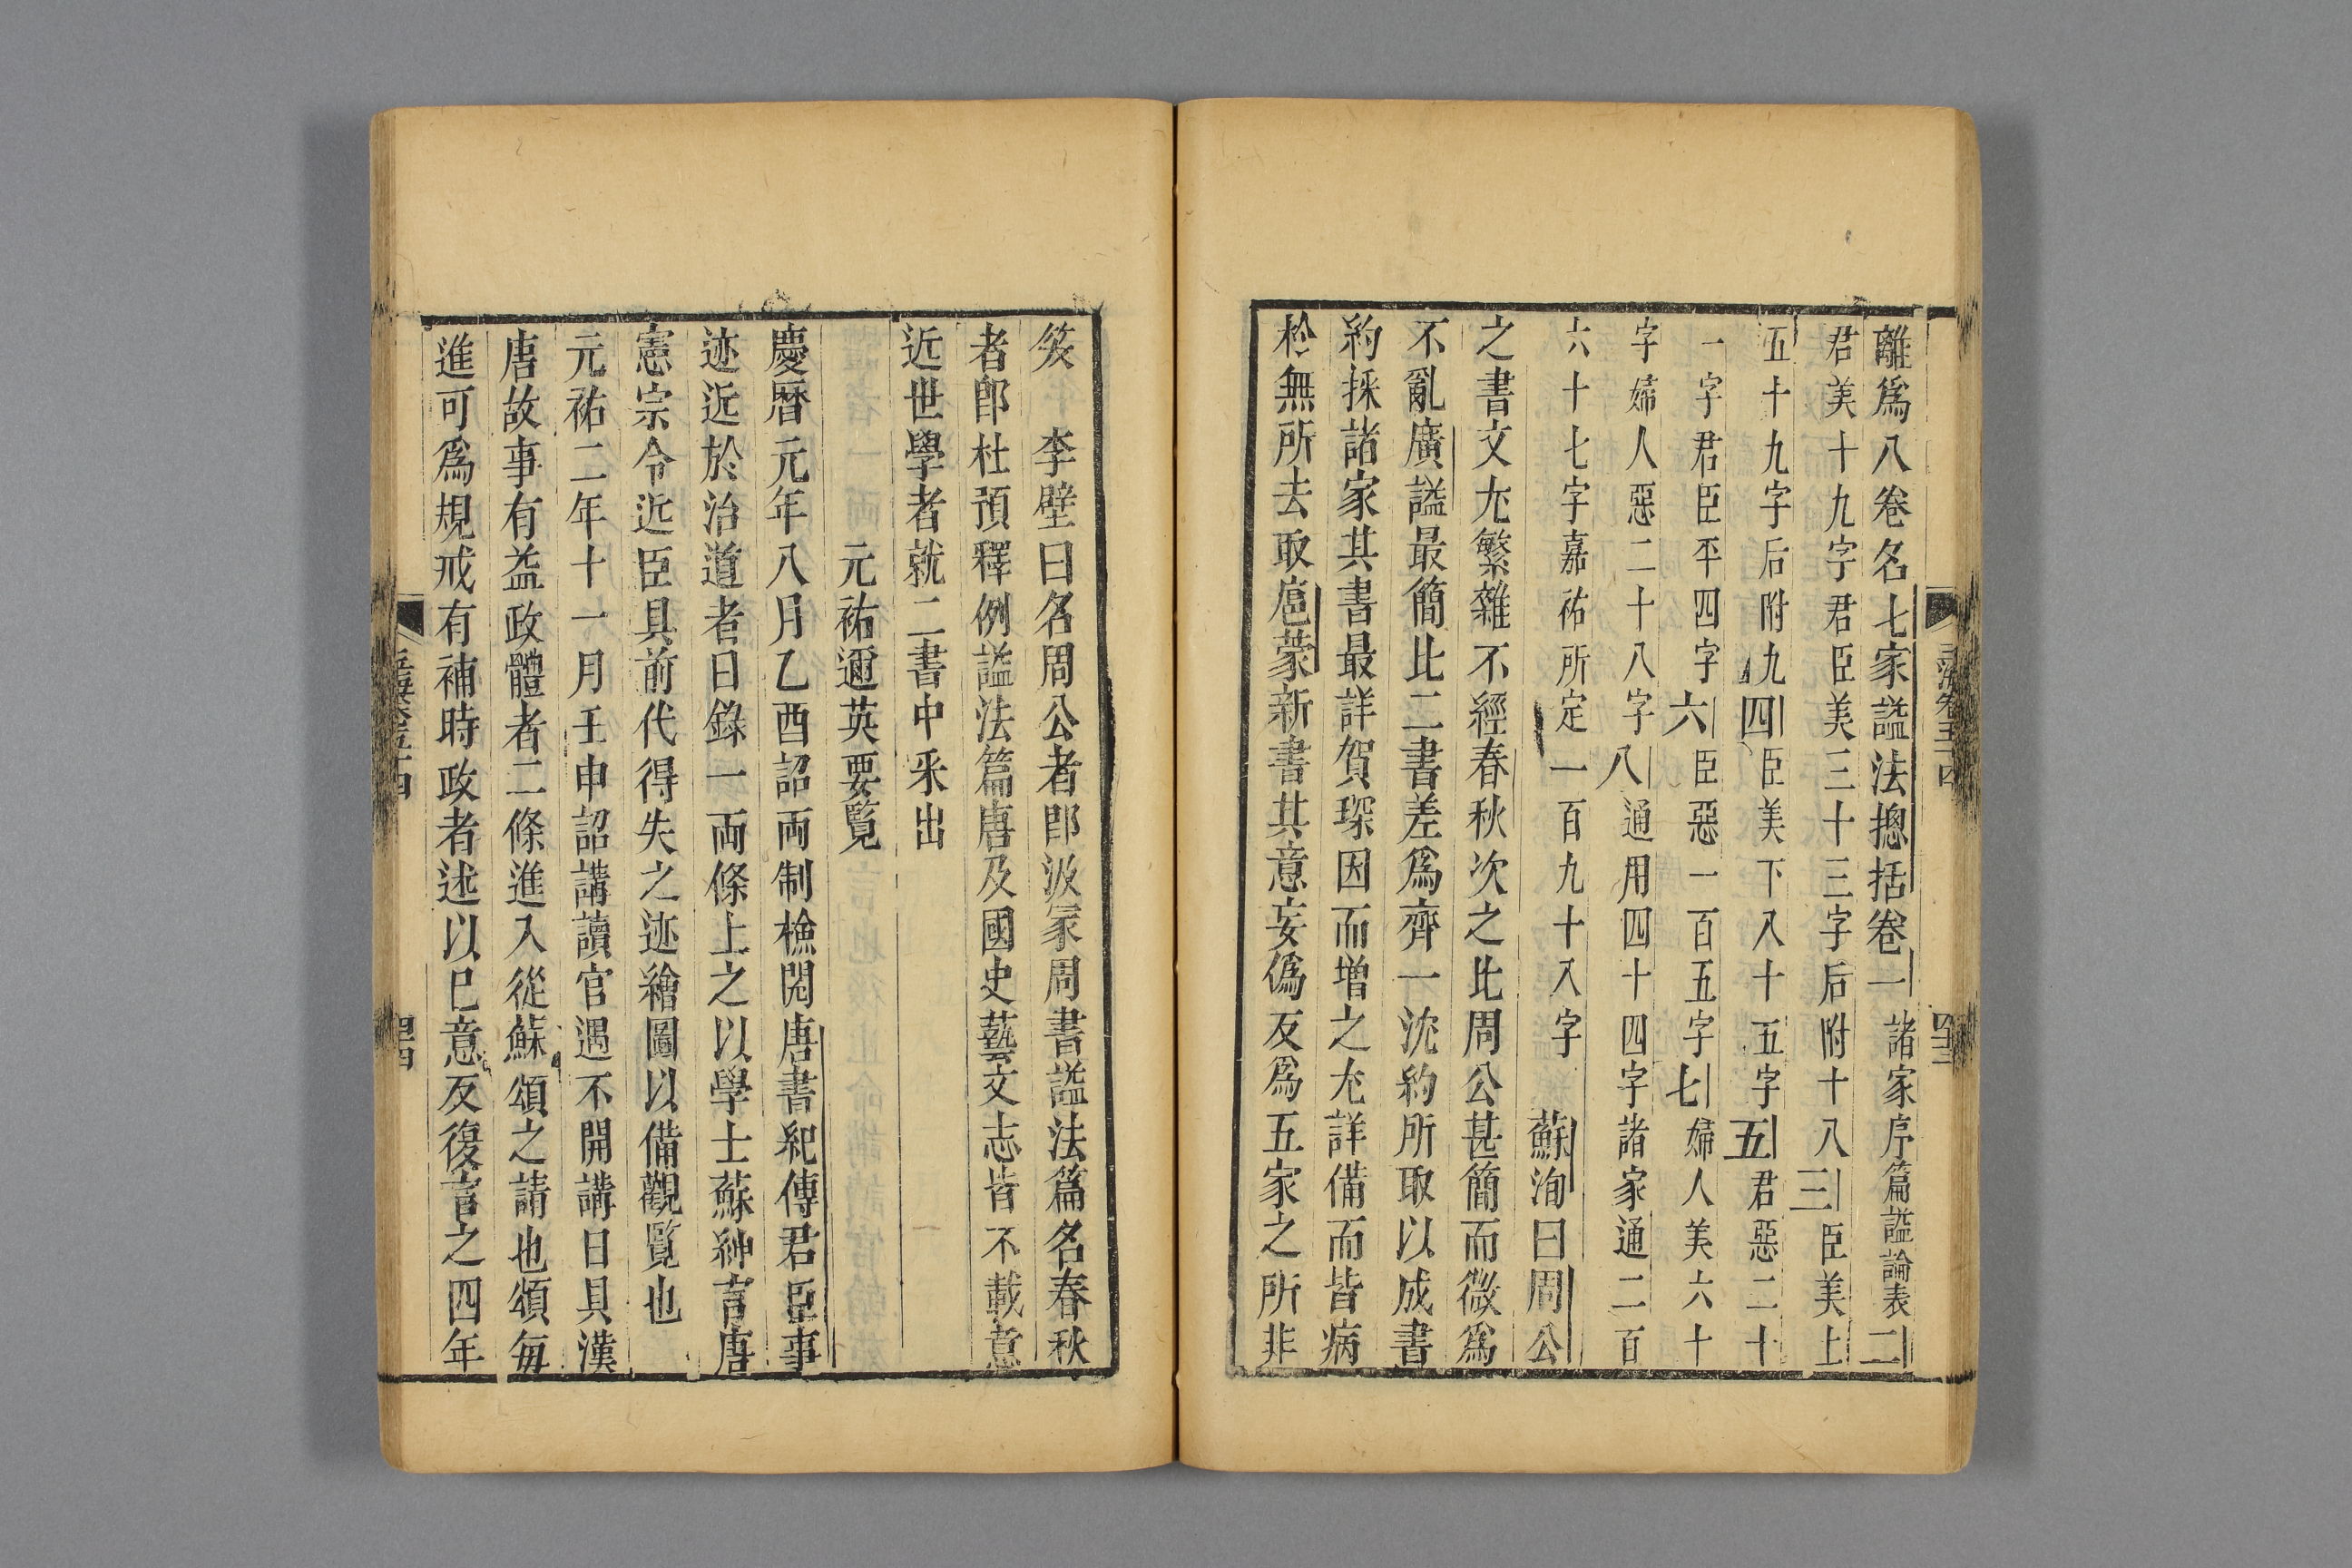 離爲八卷名七家謚法摠括卷一諸家序篇謚論表二
君美十九字君臣美三十三字后附十八三臣美上
五十九字后附九四臣美下八十五字五君惡二十
一字君臣平四字六臣惡一百五字七婦人美六十
字婦人惡二十八字八通用四十四字諸家通二百
六十七字嘉祐所定一百九十八字 蘇洵曰周公
之書文尢繁雜不經春秋次之比周公甚簡而微爲
不亂廣謚最簡比二書差爲齊一沈約所取以成書
約採諸家其書最詳賀琛因而增之尢詳備而皆病
於無所去取扈蒙新書其意妄僞反爲五家之所非
笑 李壁曰名周公者卽汲冢周書謚法篇名春秋
者卽杜預釋例謚法篇唐及國史藝文志皆不載意
近世學者就二書中采出
元祐邇英要覽
慶曆元年八月乙酉詔兩制檢閱唐書紀傳君臣事
迹近於治道者日錄一兩條上之以學士蘇紳言唐
憲宗令近臣具前代得失之迹繪圖以備觀覽也
元祐二年十一月壬申詔講讀官遇不開講日具漢
唐故事有益政體者二條進入從蘇頌之請也頌每
進可爲規戒有補時政者述以已意反復言之四年
四十四